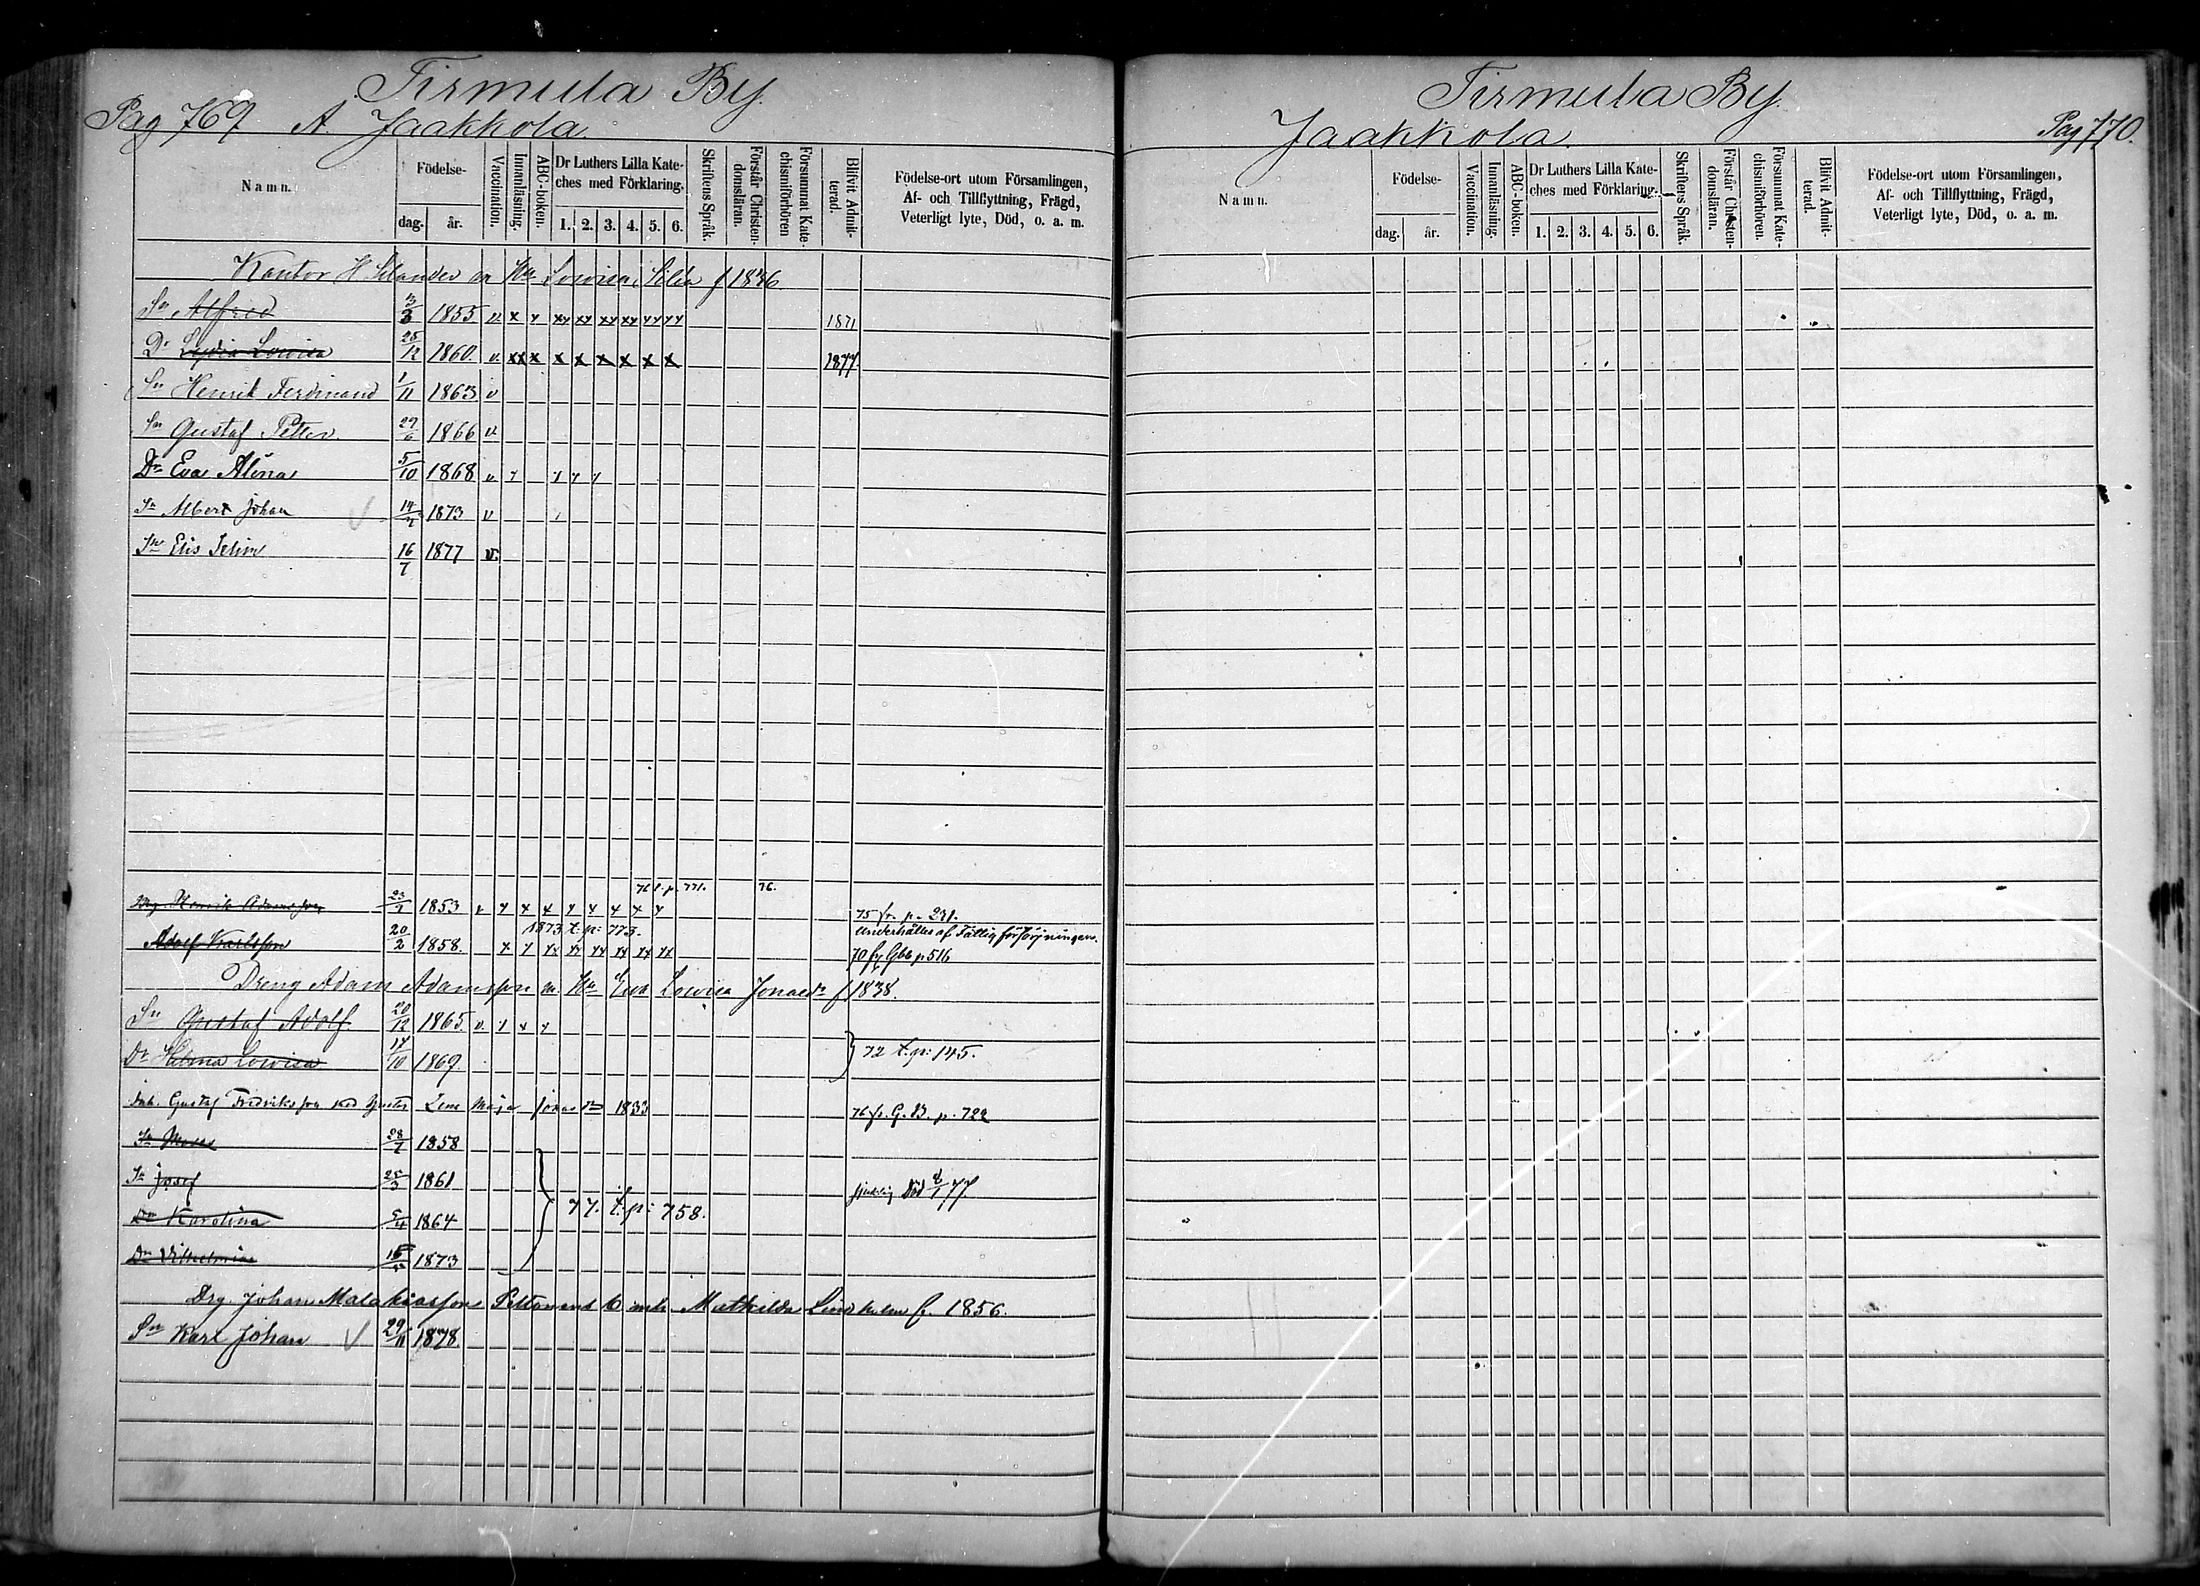 Tirmula By.
Pag 769 A. Jaakkola.
Namn. Födelse- dag. år. Vaccination. Innanläsning. ABC-boken. Dr Luthers Lilla Kateches med Förklaring. 1. 2. 3. 4. 5. 6. Skriftens Språk. Förstår Christendomsläran. Försummat Katechismiförhören Blifvit Admitterad. Födelse-ort utom Församlingen, Af- och Tillflyttning, Frägd, Veterligt lyte, Död, o. a. m.
Kantor H. m Hu Lowisa f 1836
Sn Alfred 3/3 1855 v x y xy xy xy xy yy yy 1871
Dr Lydia Lowisa 25/12 1860. v. xx x x x x x x x 1877.
Sn Henrik Ferdinand 1/11 1863 v
Sn Gustaf Petter. 29/6 1866 v
Dr Eva Alina 5/10 1868 v. y y y y
Sn Albert Johan 1873 v
Sn Elis Selim 16/7 1877 v.
76 t. p. 771. 76.
Drg Henrik Adamsson 1853 v y x x y y y x y 75 fr. p. 231.
1873 t. p: 773. Underhålles af Fattigförsörjningen.
Adolf Karlsson 20/2 1858. 70 fr Gbb p 516
Dreng Adam Adamsson m. Hu Eva Lowisa Jonaedr f 1838.
Sn Gustaf Adolf 20/12 1865. v. y x y
Dr Helma Lowisa 14/10 1869. 72 t. p: 145.
Inh. Gustaf Fredriksson Lena Maja Jonasdr 1833 76 fr. G. B. p. 722
Sn Moses 28/7 1858
Sn Josef 25/3 1861 Död 8/1 77.
77. t. p: 758.
Dr Karolina 5/4 1864
Dr Vilhelmina 1873
Drg. Johan Malakiasson Mathilda Lindholm f. 1856.
Sn Karl Johan 29/11 1878.
Tirmula By
Jaakkola. Pag 770.
Namn. Födelse- dag. år. Vaccination. Innanläsning. ABC-boken. Dr Luthers Lilla Kateches med Förklaring. 1. 2. 3. 4. 5. 6. Skriftens Språk. Förstår Christendomsläran. Försummat Katechismiförhören. Blifvit Admitterad. Födelse-ort utom Församlingen, Af- och Tillflyttning, Frägd, Veterligt lyte, Död, o. a. m.